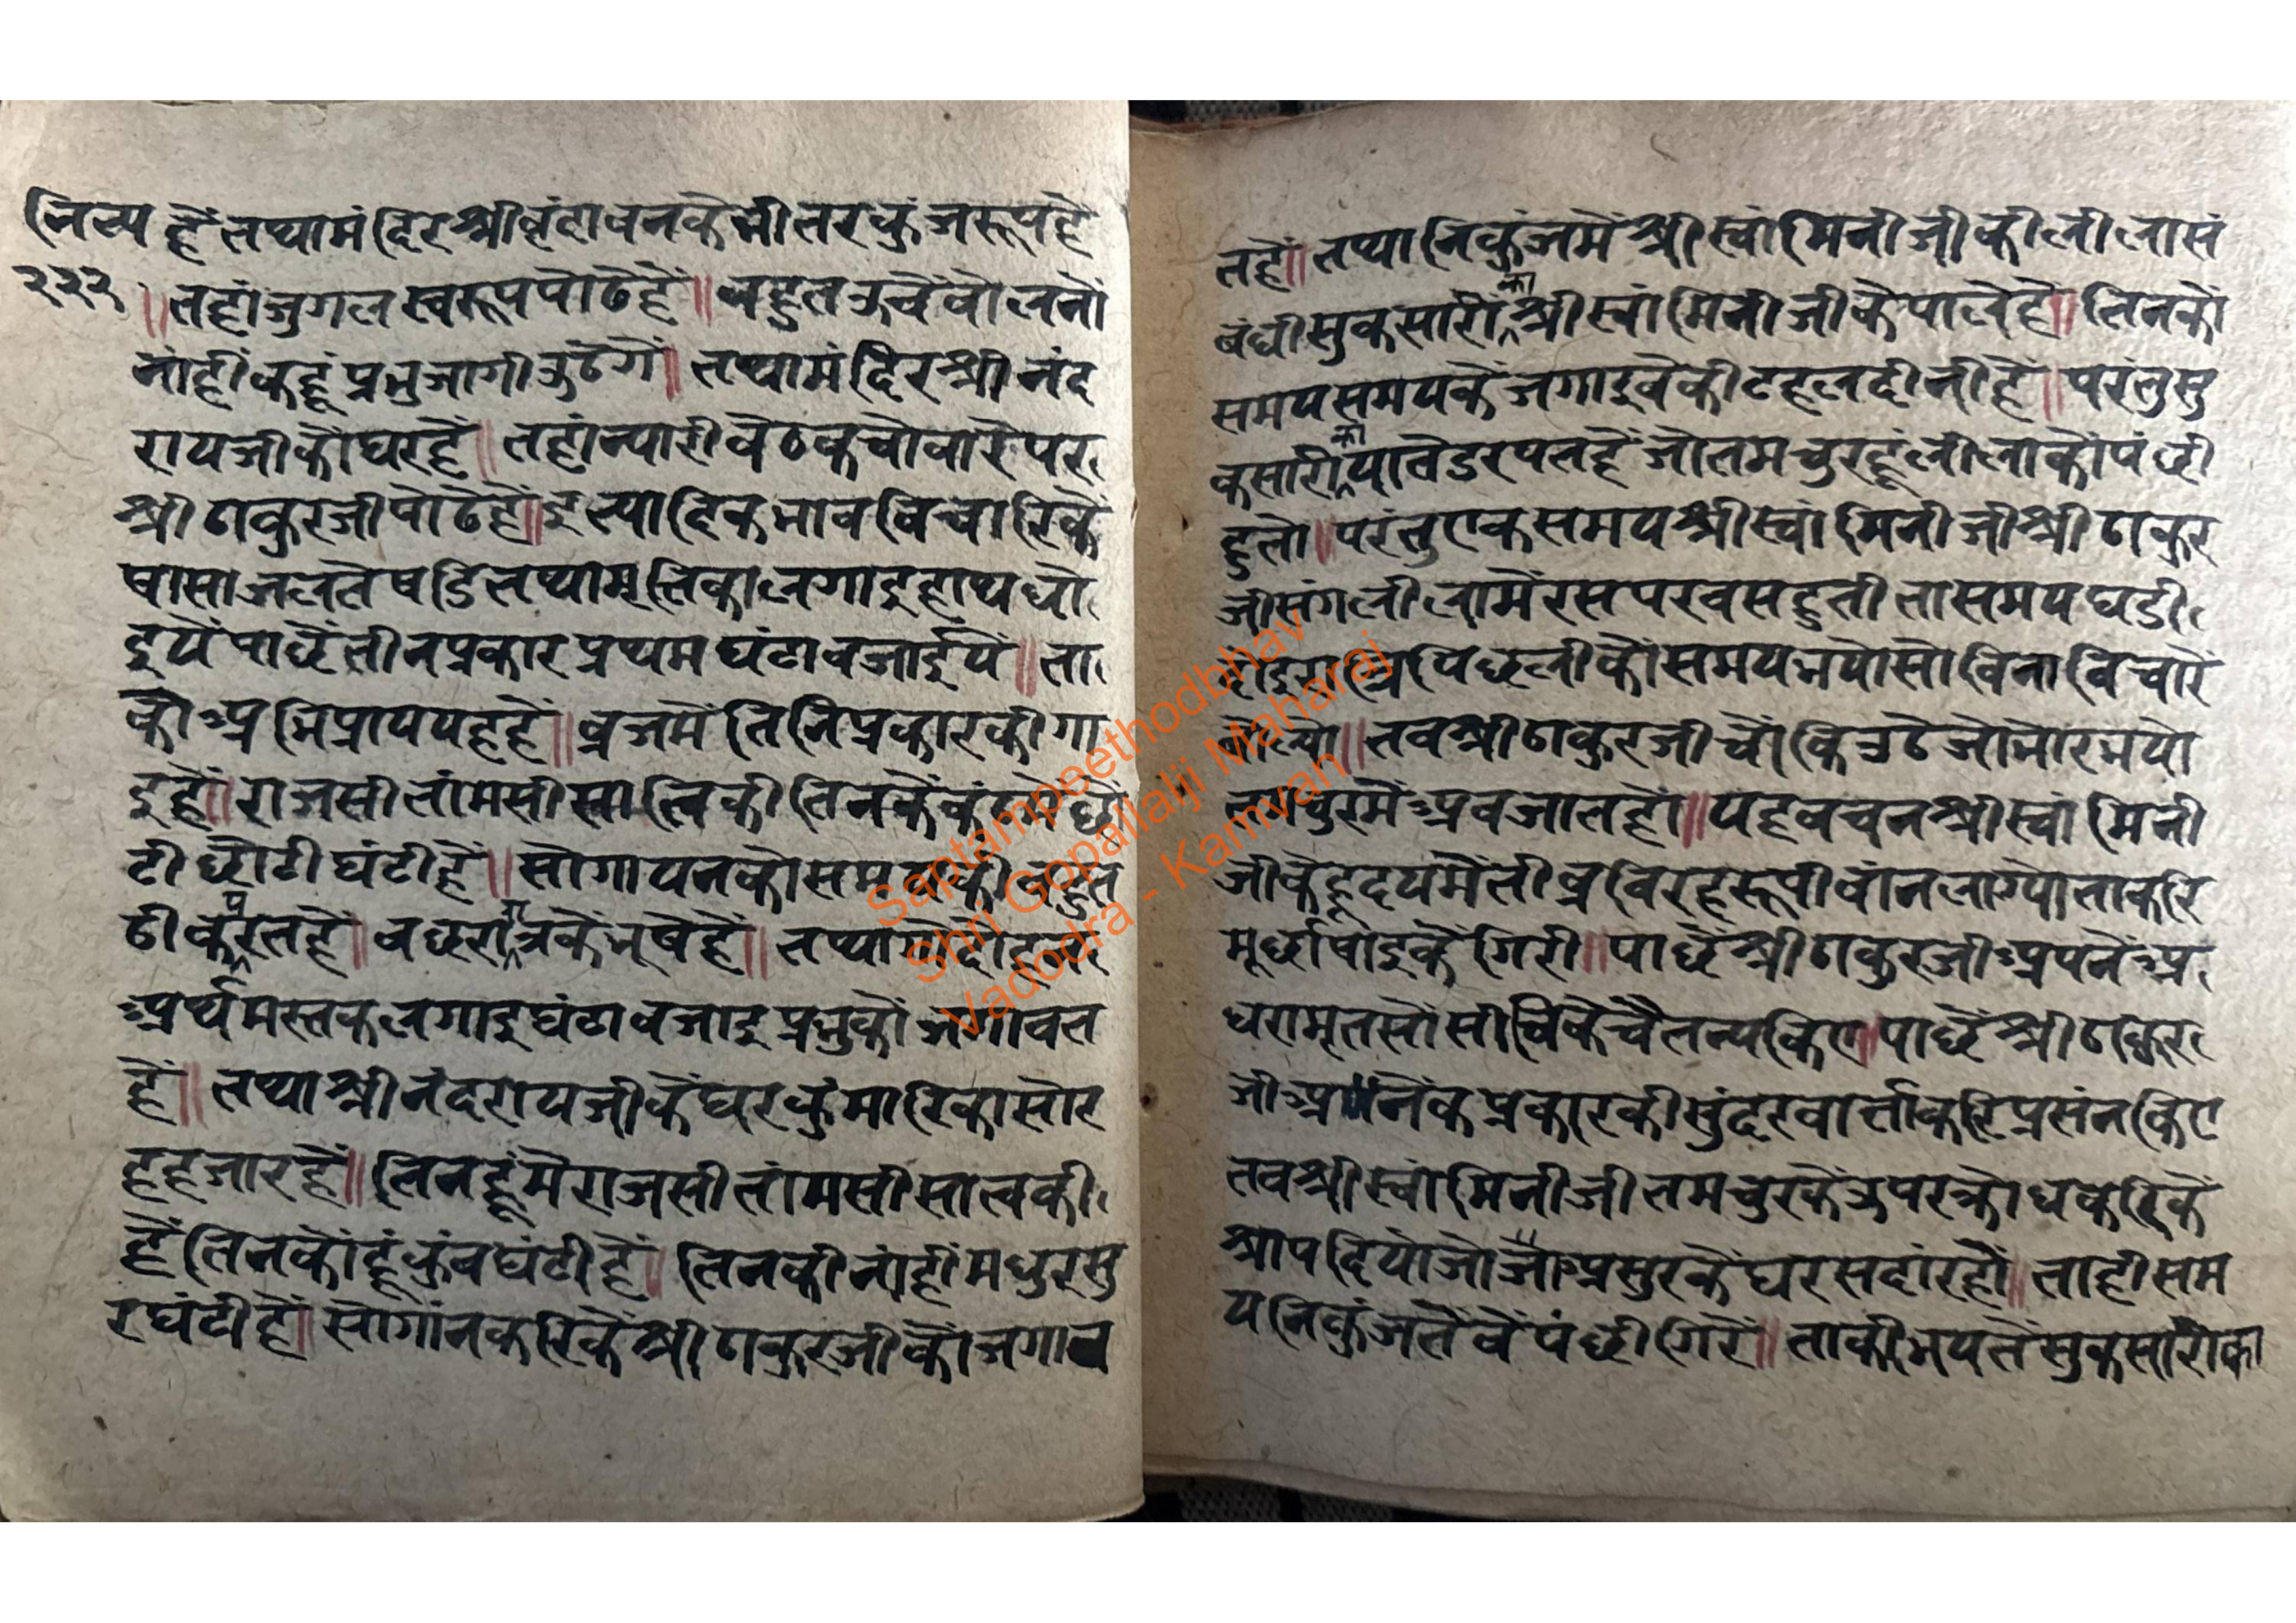 नित्य हैं तथा मंदिर श्रीवृंदावनकै भीतर कुंजरूप है
२३२
॥ तहां जुगल स्वरूप पोढे हैं ॥ बहुत ऊचें बोलनों
नांहीं कहूं प्रभु जागी उठेगें ॥ तथा मंदिर श्री नंद
रायजी कौ घर हैं ॥ तहां न्यारी बैठक चोबारे पर
श्री ठाकुरजी पोढे हैं ॥ इत्यादिक भाव विचारिकैं
षासा जलतें षडि तथा मृतिका लगाइ हाथ धो
इयें पाछैं तीन प्रकार प्रथम घंटा बजाईयें ॥ ता
कौ अभिप्राय यह हैं ॥ व्रजमें तिनि प्रकारकी गा
इ हैं ॥ राजसी तांमसी स्वात्विकी तिनकें कंठमें छो
टी छोटी घंटी हैं ॥ सो गायनको समय
ठी करत हैं ॥ बछरानकें भूषे हैं ॥ तथा
अर्थ मस्तक लगाइ घंटा बजाइ प्रभुकों जगावत
हैं ॥ तथा श्री नंदरायजीकें घर कुंमारिका सोर
ह हजार हैं ॥ तिनहूंमें राजसी तांमसी सात्वकी
हैं तिनकों हूं कुंच घंटी हैं ॥ तिनकी नांहीं मधुर सु
र घंटी हैं ॥ सो गांन करिकैं श्री ठाकुरजी कों जगाव
त हैं ॥ तथा निकुंजमें श्री स्वांमिनीजीकी लीला सं
बंधी सुक सारीका श्री स्वांमिनीजीकै पाले हैं ॥ तिनकों
समय समयकें जगाइवेकी टहल दीनी हैं ॥ परंतु सु
क सारीका यातें डरपत हैं जो तमचुर हूं लीलाकों पंछी
हुतो ॥ परंतु एक समय श्री स्वांमिनीजी श्री ठाकुर
जी संग लीलामें रस परवस हुती ता समय घडी
दोइ रात्रि पिछली कौ समय भयो सो विना विचारें
बोल्यो ॥ तब श्री ठाकुरजी चौंकि उठे जो भोर भयो
मैं अब जात हों ॥ यह वचन श्री स्वांमिनी
जीके हृदयमें तीव्र विरहरूपी बांन लाग्यो ताकरि
मूर्छा षाइकें गिरी ॥ पाछैं श्री ठाकुरजी अपनें अ
धरामृतसों सींचिकें चैतन्य किए ॥ पाछैं श्री ठाकुर
जी अनेंक प्रकारकी सुंदर वार्त्ता करि प्रसंन किए
तब श्री स्वांमिनीजी तमचुरकें उपर क्रोध करिकैं
श्राप दियो जो जा असुरकें घर सदां रहौ ॥ ताही सम
य निकुंजतें वें पंछी गिरें ॥ ताकी भयतें सुक सारीका
Saptampeethodbhav
Shri Gopallalji Maharaj
Vadodra - Kamvan